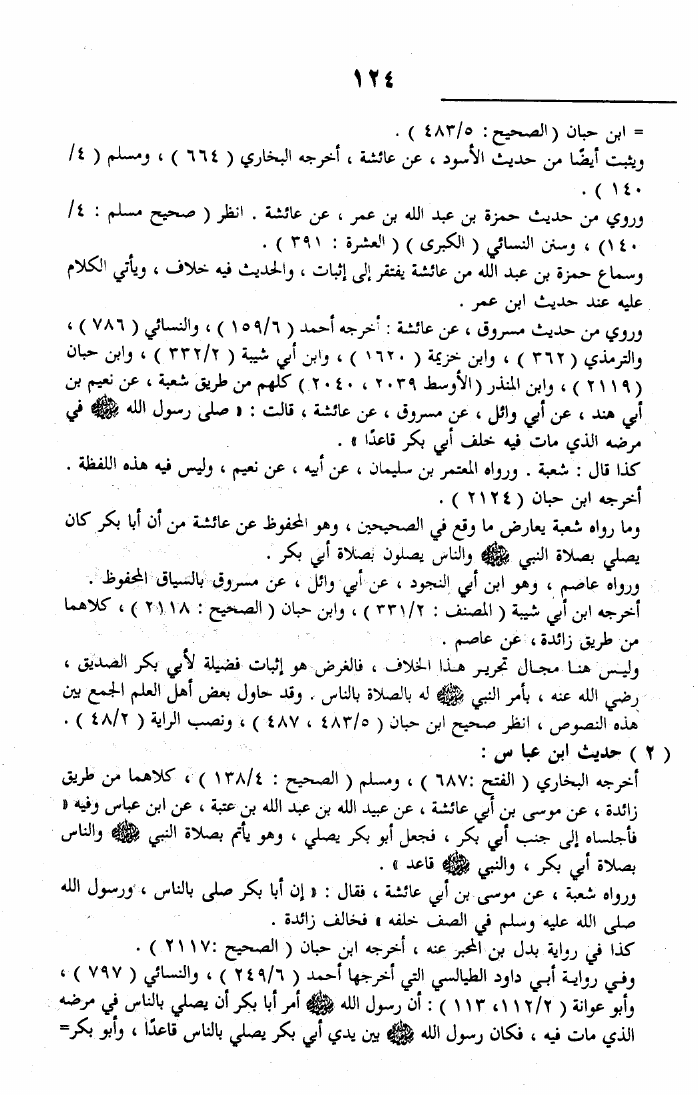 ١٢٤
= ابن حبان ( الصحيح : ٤٨٣/٥ ) .
ويثبت أيضًا من حديث الأسود ، عن عائشة ، أخرجه البخاري ( ٦٦٤ ) ، ومسلم ( ٤/
١٤٠ ) .
وروي من حديث حمزة بن عبد الله بن عمر ، عن عائشة . انظر ( صحيح مسلم : ٤/
١٤٠) ، وسنن النسائي ( الكبرى ) ( العشرة : ٣٩١ ) .
وسماع حمزة بن عبد الله من عائشة يفتقر إلى إثبات ، والحديث فيه خلاف ، ويأتي الكلام
عليه عند حديث ابن عمر .
وروي من حديث مسروق ، عن عائشة : أخرجه أحمد ( ١٥٩/٦ ) ، والنسائي ( ٧٨٦ ) ،
والترمذي ( ٣٦٢ ) ، وابن خزيمة ( ١٦٢٠ ) ، وابن أبي شيبة ( ٣٣٢/٢ ) ، وابن حبان
( ٢١١٩ ) ، وابن المنذر (الأوسط ٢٠٣٩ ، ٢٠٤٠ ) كلهم من طريق شعبة ، عن نعيم بن
أبي هند ، عن أبي وائل ، عن مسروق ، عن عائشة ، قالت : « صلى رسول الله ﷺ في
مرضه الذي مات فيه خلف أبي بكر قاعدًا » .
كذا قال : شعبة . ورواه المعتمر بن سليمان ، عن أبيه ، عن نعيم ، وليس فيه هذه اللفظة .
أخرجه ابن حبان ( ٢١٢٤ ) .
وما رواه شعبة يعارض ما وقع في الصحيحين ، وهو المحفوظ عن عائشة من أن أبا بكر كان
يصلي بصلاة النبي ﷺ والناس يصلون بصلاة أبي بكر .
ورواه عاصم ، وهو ابن أبي النجود ، عن أبي وائل ، عن مسروق بالسياق المحفوظ .
أخرجه ابن أبي شيبة ( المصنف : ٣٣١/٢ ) ، وابن حبان ( الصحيح : ٢١١٨ ) ، كلاهما
من طريق زائدة ، عن عاصم .
وليس هنا مجال تحرير هذا الخلاف ، فالغرض هو إثبات فضيلة لأبي بكر الصديق ،
رضي الله عنه ، بأمر النبي ﷺ له بالصلاة بالناس . وقد حاول بعض أهل العلم الجمع بين
هذه النصوص ، انظر صحيح ابن حبان ( ٤٨٣/٥ ، ٤٨٧ ) ، ونصب الراية ( ٤٨/٢ ) .
( ٢ ) حديث ابن عبا س :
أخرجه البخاري ( الفتح :٦٨٧ ) ، ومسلم ( الصحيح : ١٣٨/٤ ) ، كلاهما من طريق
زائدة ، عن موسى بن أبي عائشة ، عن عبيد الله بن عبد الله بن عتبة ، عن ابن عباس وفيه «
فأجلساه إلى جنب أبي بكر ، فجعل أبو بكر يصلي ، وهو يأتم بصلاة النبي ﷺ والناس
بصلاة أبي بكر ، والنبي ﷺ قاعد » .
ورواه شعبة ، عن موسى بن أبي عائشة ، فقال : « إن أبا بكر صلى بالناس ، ورسول الله
صلى الله عليه وسلم في الصف خلفه » فخالف زائدة .
كذا في رواية بدل بن المحبر عنه ، أخرجه ابن حبان ( الصحيح :٢١١٧ ) .
وفي رواية أبي داود الطيالسي التي أخرجها أحمد ( ٢٤٩/٦ ) ، والنسائي ( ٧٩٧ ) ،
وأبو عوانة ( ١١٢/٢، ١١٣ ) : أن رسول الله ﷺ أمر أبا بكر أن يصلي بالناس في مرضه
الذي مات فيه ، فكان رسول الله ﷺ بين يدي أبي بكر يصلي بالناس قاعدًا ، وأبو بكر=